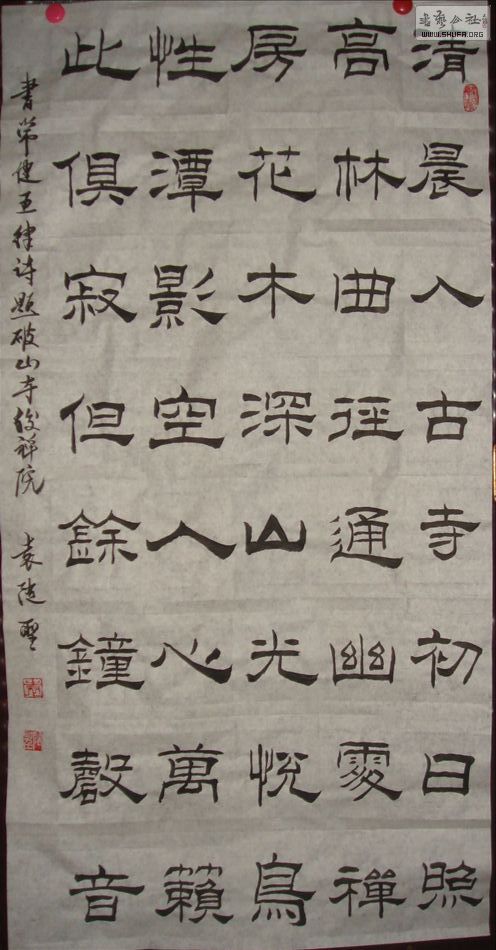 清晨入古寺初日照
高林曲徑通幽處禪
房花木深山光悅鳥
性潭影空人心萬籟
此俱寂但餘鐘磬音
書常健五律詩題破山寺後禪院 袁聖
书艺公社
WWW.SHUFA.ORG